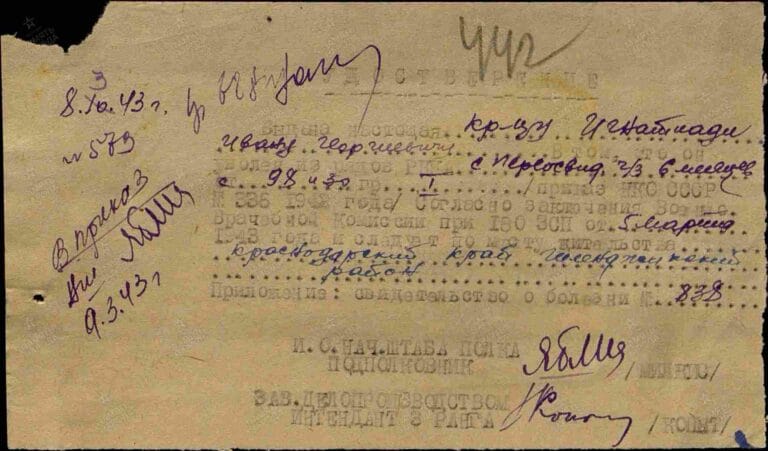 442
8.3.43 г.
№ 579
УДОСТОВЕРЕНИЕ
Выдано настоящее кр-цу Игнатиади
Ивану Георгиевич в том, что он
уволен из рядов РККА с переосвид. ч/з 6 месяцев
ст. 98 и 30 гр. I /приказ НКО СССР
№ 336 1942 года/ Согласно заключения Военно
Врачебной Комиссии при 180 ЗСП от 5 марта
1943 года и следует по месту жительства
Краснодарский край Геленджикский
район
Приложение: свидетельство о болезни № 838
В приказ
9.3.43 г
И.О.НАЧ.ШТАБА ПОЛКА
ПОДПОЛКОВНИК
ЗАВ.ДЕЛОПРОИЗВОДСТВОМ
ИНТЕНДАНТ 3 РАНГА /КОПЫТ/